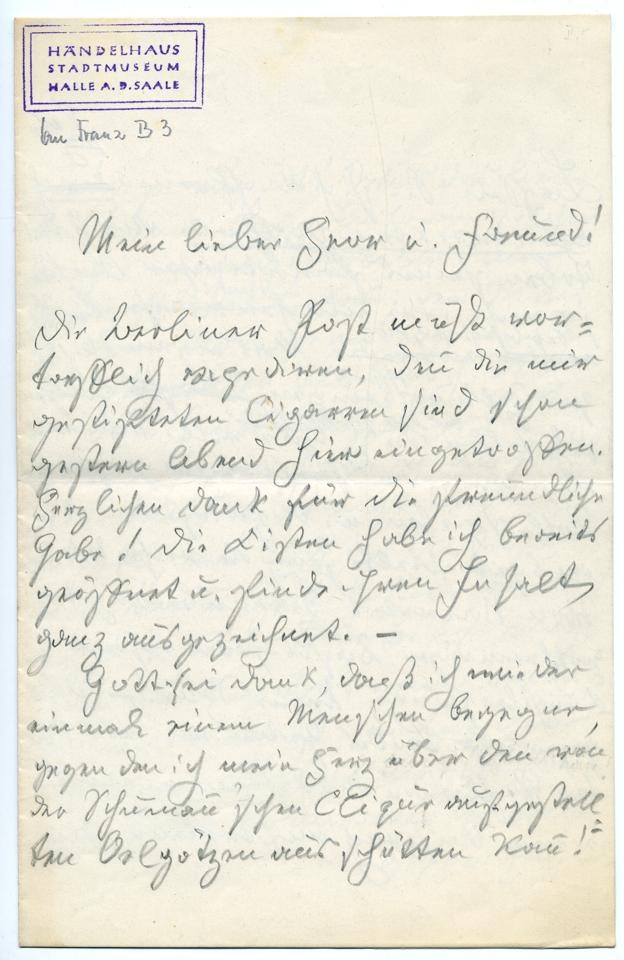 HÄNDELHAUS
STADTMUSEUM
HALLE A. D. SAALE
Franz B 3
Mein lieber Herr u. Freund!
Die Berliner Post muß vor=
trefflich expediren, deñ die mir
gestifteten Cigarren sind schon
gestern Abend hier eingetroffen.
Herzlichen Dank für die freundliche
Gabe! Die Kisten habe ich bereits
geöffnet u. finde ihren Inhalt
ganz ausgezeichnet. –
Gott sei Dank, daß ich wieder
einmal einem Menschen begegne,
gegen den ich mein Herz über den von
der Schumañ'schen Clique aufgestell
ten Oelgötzen ausschütten kañ! –